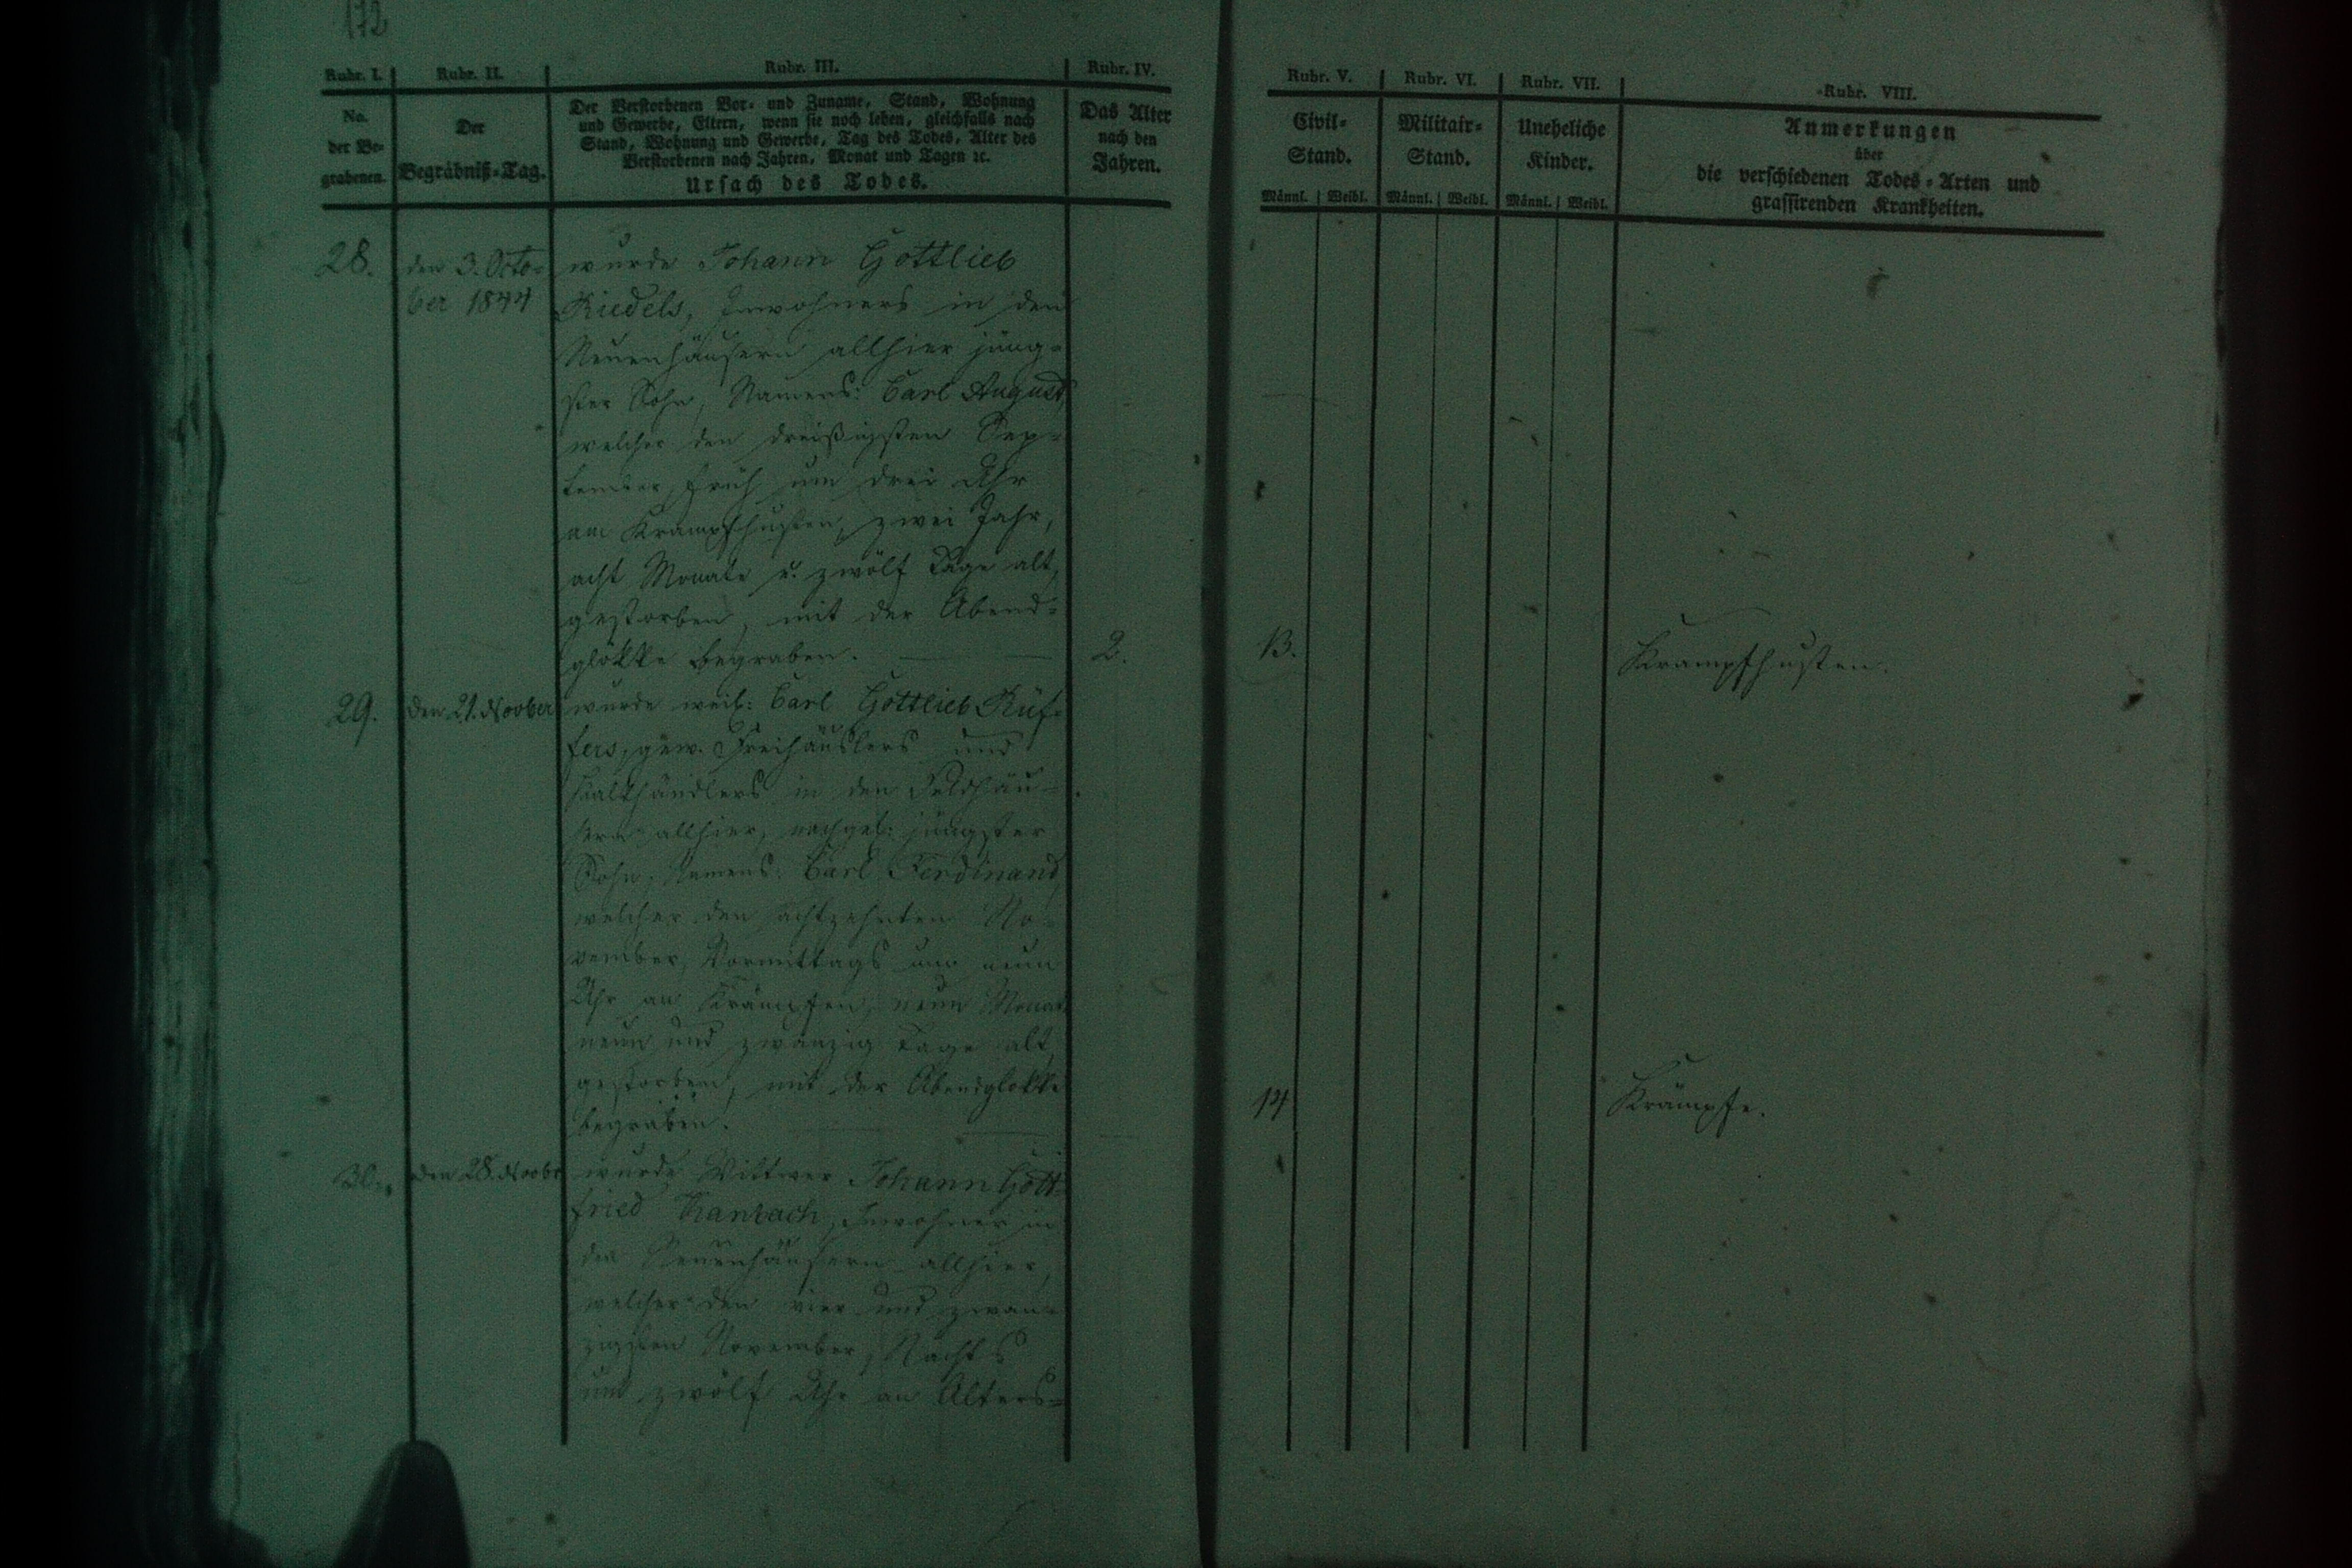 172
Rubr. I. Rubr. II. Rubr. III. Rubr. IV.
No. der Be-grabenen.
Der Begräbniß-Tag.
Der Verstorbenen Vor- und Zuname, Stand, Wohnung
und Gewerbe, Eltern, wenn sie noch leben, gleichfalls nach
Stand, Wohnung und Gewerbe, Tag des Todes, Alter des
Verstorbenen nach Jahren, Monat und Tagen ꝛc.
Ursach des Todes.
Das Alter
nach den
Jahren.
28. den 3. Octo- wurde Johann Gottlieb
ber 1844 Riedels, Inwohners in den
Neuenhäusern allhier jüng-
ster Sohn, Namens: Carl August,
welcher den dreißigsten Sep-
tember, früh um drei Uhr
am Krampfhusten, zwei Jahr,
acht Monate u. zwölf Tage alt,
gestorben, mit der Abend-
glokke begraben. 2.
29. den 21. Novber wurde weil: Carl Gottlieb Küf-
fers, gew. Freihäuslers und
händlers in den Feldhäu-
sern allhier, nachgel: jüngster
Sohn, Namens: Carl Ferdinand,
welcher den achtzehnten No-
vember, Vormittags um neun
Uhr an Krämpfen, neun Monat
neun und zwanzig Tage alt,
gestorben, mit der Abendglokke
begraben.
30. den 28. Novbr wurde Wittwer Johann Gott-
fried Inwohner in
den Neuenhäusern allhier,
welcher den vier und zwan-
zigsten November, Nachts
um zwölf Uhr an Alters-
Rubr. V. Rubr. VI. Rubr. VII. Rubr. VIII.
Civil-
Stand.
Männl. Weibl.
Militair-
Stand.
Männl. Weibl.
Uneheliche
Kinder.
Männl. Weibl.
Anmerkungen
über
die verschiedenen Todes-Arten und
grassirenden Krankheiten.
13. Krampfhusten.
14 Krämpfe.